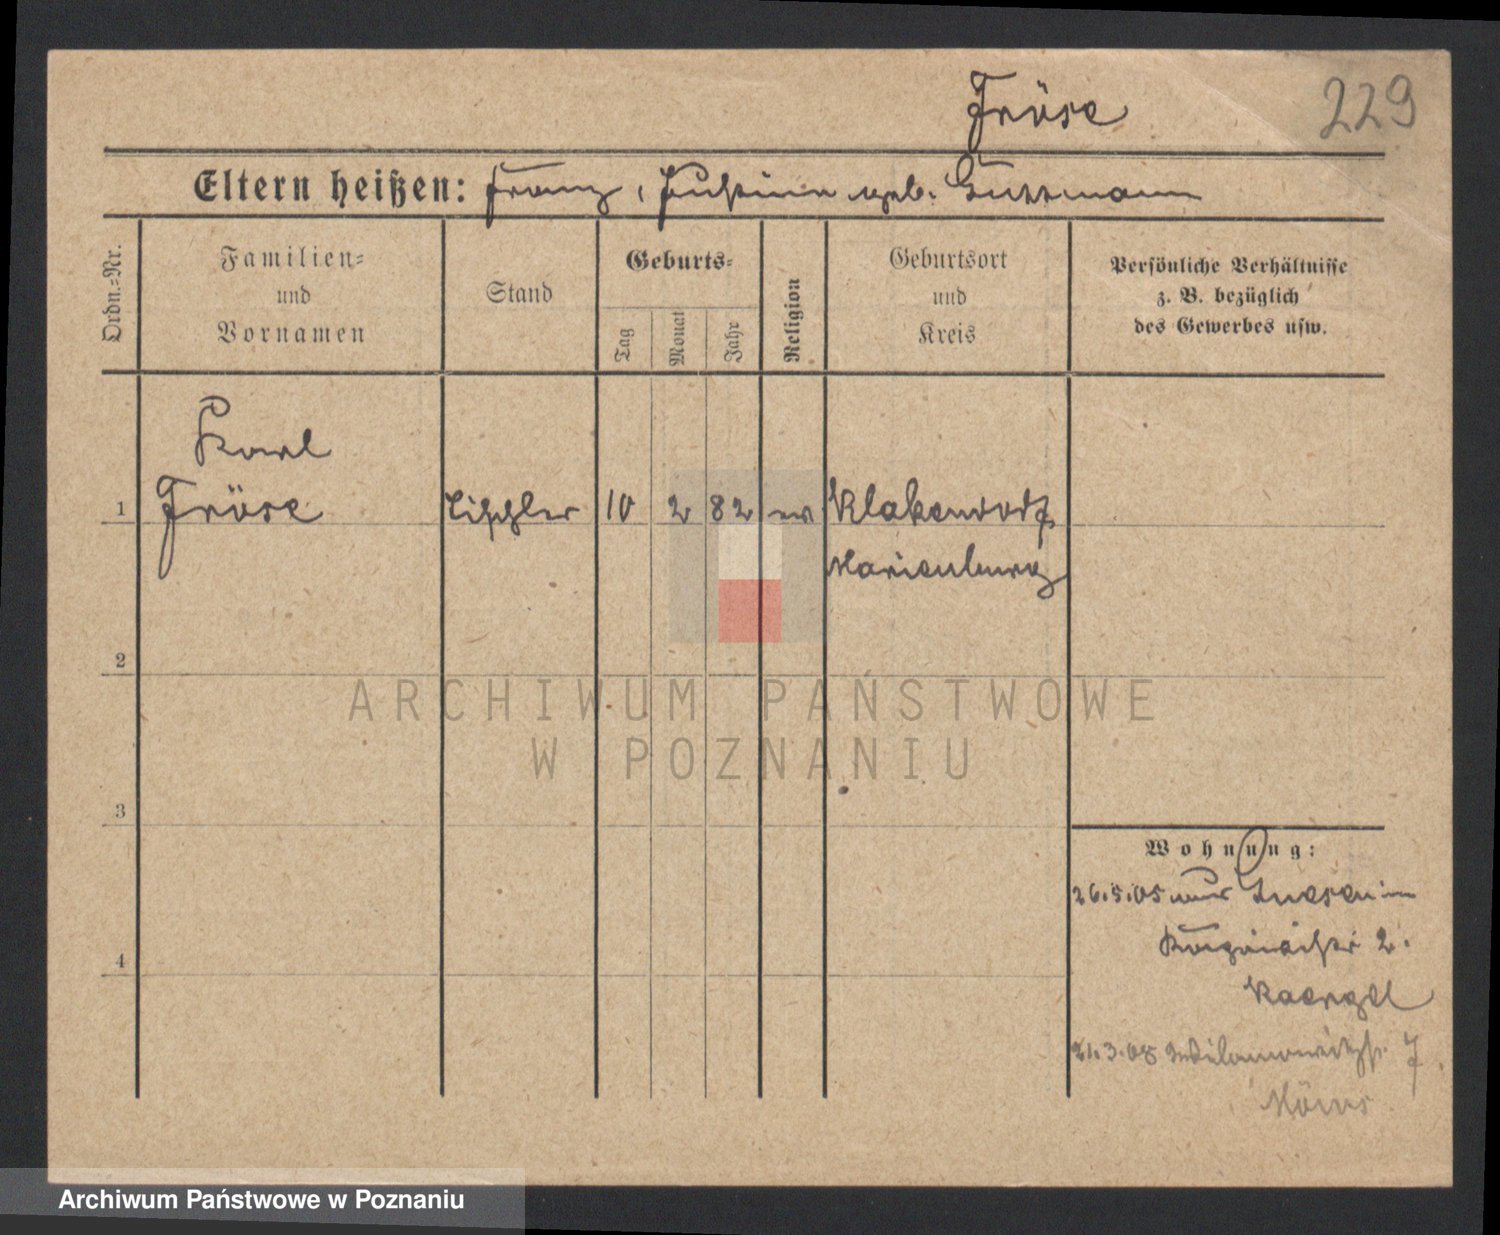 Fröse
229
Eltern heißen: Franz, Justine geb. Gussmann
Ordn.-Nr.
Familien-
und
Vornamen
Stand
Geburts-
Tag
Monat
Jahr
Religion
Geburtsort
und
Kreis
Persönliche Verhältnisse
z. B. bezüglich
des Gewerbes usw.
Karl
1 Fröse Tischler 10 2 82 ev Klakendorf
Marienburg
2
3
4
Wohnung:
26.5.05 aus Gnesen in
2.
Kaergel
21.3.08 7
ARCHIWUM PAŃSTWOWE
W POZNANIU
Archiwum Państwowe w Poznaniu